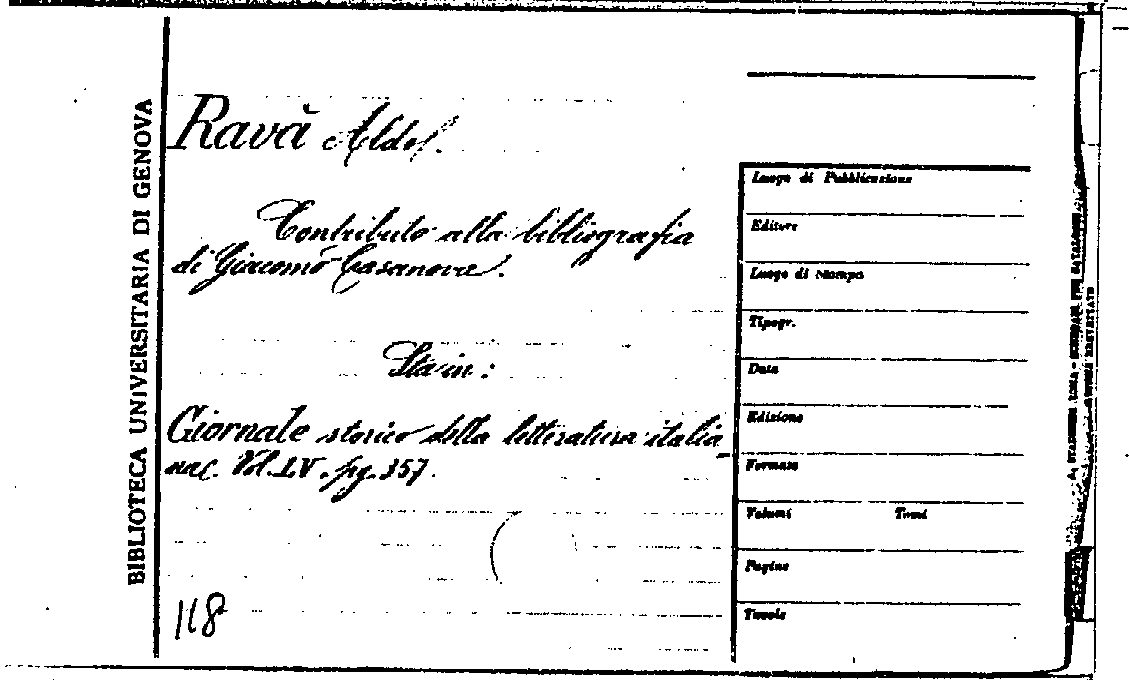 BIBLIOTECA UNIVERSITARIA DI GENOVA
Ravà Aldo.
Contributo alla bibliografia
di Giacomo Casanova.
Sta in:
Giornale storico della letteratura italia
na. Vol. LV. pg. 357.
118
Luogo di Pubblicazione
Editore
Luogo di Stampa
Tipogr.
Data
Edizione
Formato
Volumi Tomi
Pagine
Tavole